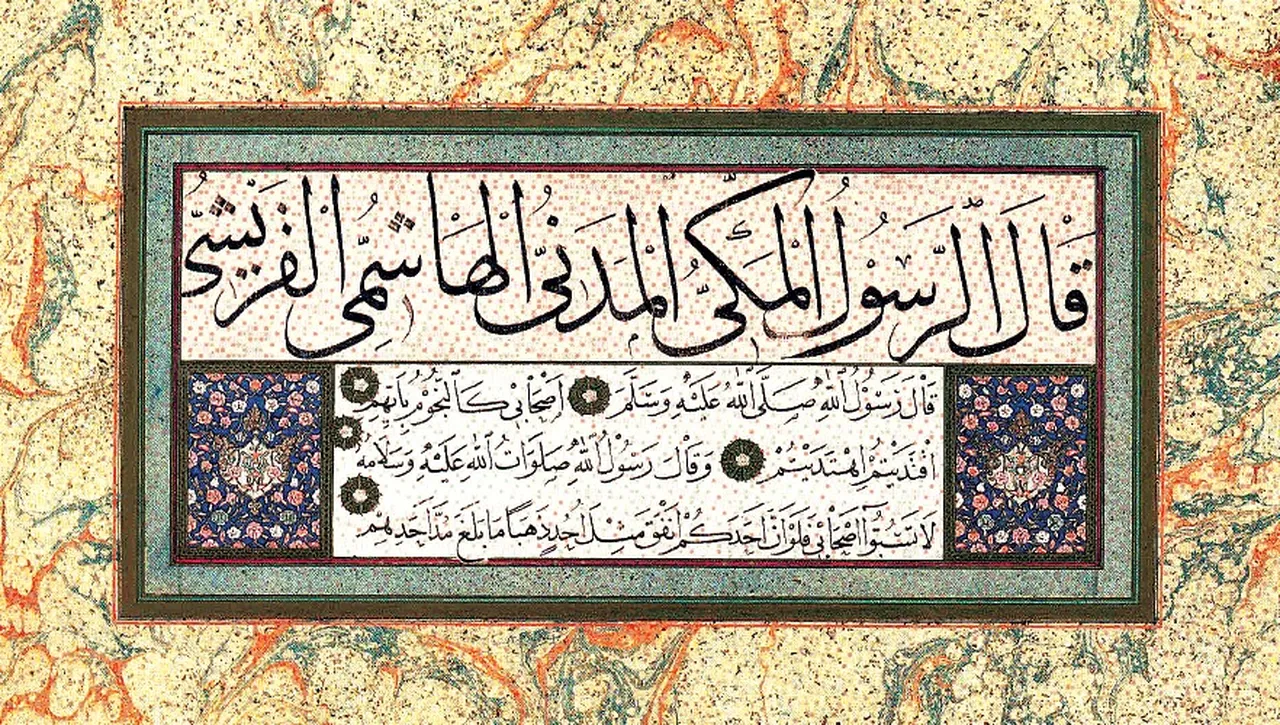 قَالَ الرَّسُولُ الْمَكِّىُّ الْمَدَنِىُّ الْهَاشِمِّى الْقُرَيْشِىُّ
قَالَ رَسُوْلُ اللّٰهِ صَلَّى اللّٰهُ عَلَيْهِ وَسَلَّمَ اَصْحَابِى كَالنُّجُوْمِ بِاَيِّهِمْ
اقْتَدَيْتُمْ اِهْتَدَيْتُمْ وَقَالَ رَسُوْلُ اللّٰهِ صَلَوَاتُ اللّٰهِ عَلَيْهِ وَسَلَامُهُ
لَا تَسُبُّوا اَصْحَابِى فَلَوْ اَنَّ اَحَدَكُمْ اَنْفَقَ مِثْلَ اُحُدٍ ذَهَبًا مَا بَلَغَ مُدَّ اَحَدِهِمْ